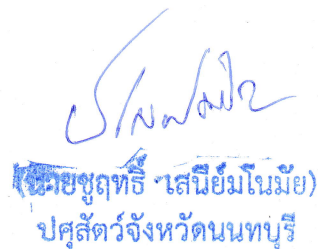 (นายชูฤทธิ์ เสนีย์มโนมัย)
ปศุสัตว์จังหวัดนนทบุรี